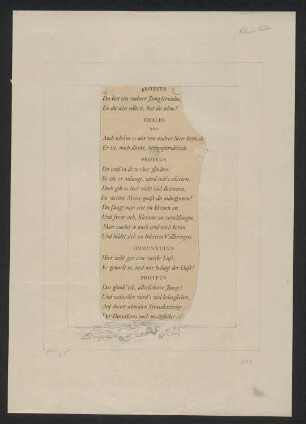 PROTEUS
Du bist ein wahrer Jungfernsohn,
Eh du sein solltest, bist du schon!
THALES
leise
Auch scheint es mir von andrer Seite kritisch:
Er ist, mich dünkt, hermaphroditisch.
PROTEUS
Da muß es desto eher glücken;
So wie er anlangt, wird sich's schicken.
Doch gilt es hier nicht viel Besinnen,
Im weiten Meere mußt du anbeginnen!
Da fängt man erst im Kleinen an
Und freut sich, Kleinste zu verschlingen,
Man wächst so nach und nach heran
Und bildet sich zu höherem Vollbringen.
HOMUNCULUS
Hier weht gar eine weiche Luft,
Es grunelt so, und mir behagt der Duft!
PROTEUS
Das glaub' ich, allerliebster Junge!
Und weiterhin wird's viel behaglicher,
Auf dieser schmalen Strandeszunge
Der Dunstkreis noch unsäglicher